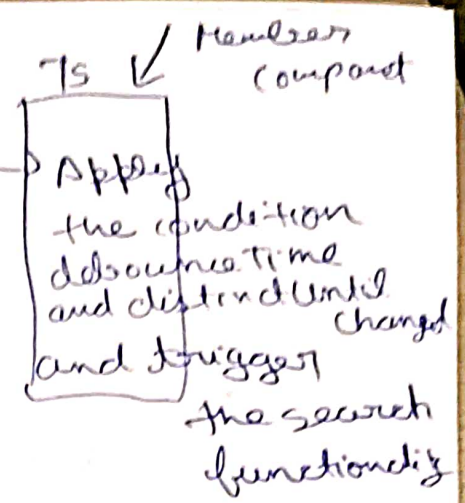 Member
Ts
Compont
Apply
the condition
debounceTime
and distinctUntil
changed
and trigger
the search
functionality